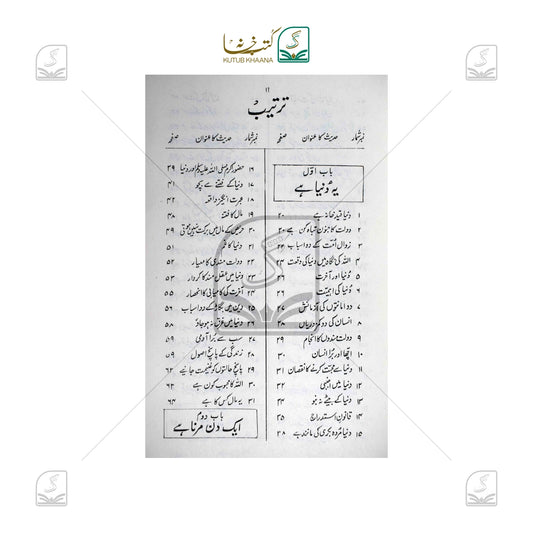 کتب خانہ
KUTUB KHAANA
ترتیب
نمبر شمار حدیث کا عنوان صفحہ
باب اوّل
یہ دُنیا ہے
۱ دنیا قید خانہ ہے ۲۰
۲ دولت کا جنون تباہ کن ہے ۲۰
۳ زوالِ اُمت کے دو اسباب ۲۲
۴ اللہ کی نگاہ میں دنیا کی وقعت ۲۴
۵ دُنیا اور آخرت ۲۶
۶ دُنیا کی اہمیت
۷ دو امانتوں کی آزمائش ۲۷
۸ انسان کی دو کمزوریاں ۲۸
۹ دولت مندوں کا انجام ۲۹
۱۰ اچھا اور بُرا انسان ۳۰
۱۱ دنیا سے محبت کرنے کا نقصان ۳۱
۱۲ دنیا میں اجنبی ۳۲
۱۳ دنیا کے بیٹے نہ بنو ۳۴
۱۴ قانونِ استدراج ۳۵
۱۵ دنیا مُردہ بکری کی مانند ہے ۳۸
نمبر شمار حدیث کا عنوان صفحہ
۱۶ حضور اکرم صلی اللہ علیہ وسلم اور دنیا ۳۹
۱۷ دنیا کے فتنے سے بچو ۴۱
۱۸ عبرت انگیز واقعہ ۴۲
۱۹ مال کا فتنہ ۴۸
۲۰ حریص کے مال میں برکت نہیں ہوتی ۴۹
۲۱ دنیا کا غم ۵۱
۲۲ دولت مندی کا معیار ۵۲
۲۳ دنیا میں عقل مند کا کردار ۵۳
۲۴ آخرت کی کامیابی کا انحصار ۵۵
۲۵ دین میں بگاڑ کے دو اسباب ۵۶
۲۶ دنیا میں غرق نہ ہو جاؤ ۵۸
۲۷ سب سے بڑا آدمی ۵۹
۲۸ زندگی کے پانچ اصول ۵۹
۲۹ پانچ حالتوں کو غنیمت جانیے ۶۲
۳۰ اللہ کا محبوب کون ہے ۶۳
۳۱ یہ مال کس کا ہے ۶۴
باب دوم
ایک دن مرنا ہے